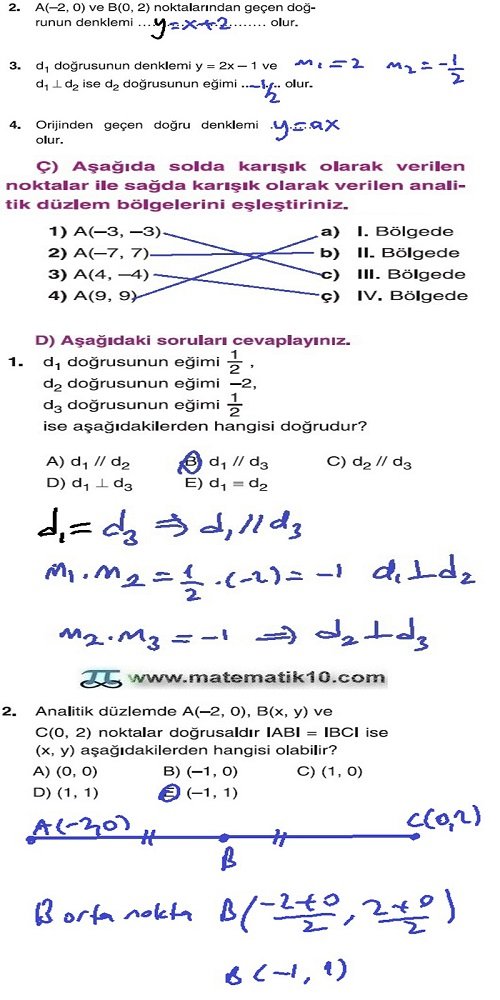 2. A(–2, 0) ve B(0, 2) noktalarından geçen doğ-
runun denklemi .... y=x+2 ........ olur.
3. d₁ doğrusunun denklemi y = 2x – 1 ve m₁ = 2 m₂ = -1/2
d₁ ⊥ d₂ ise d₂ doğrusunun eğimi ..-1/2.. olur.
4. Orijinden geçen doğru denklemi .y=ax
olur.
Ç) Aşağıda solda karışık olarak verilen
noktalar ile sağda karışık olarak verilen anali-
tik düzlem bölgelerini eşleştiriniz.
1) A(–3, –3) a) I. Bölgede
2) A(–7, 7) b) II. Bölgede
3) A(4, –4) c) III. Bölgede
4) A(9, 9) ç) IV. Bölgede
D) Aşağıdaki soruları cevaplayınız.
1. d₁ doğrusunun eğimi 1/2 ,
d₂ doğrusunun eğimi –2,
d₃ doğrusunun eğimi 1/2
ise aşağıdakilerden hangisi doğrudur?
A) d₁ // d₂ B) d₁ // d₃ C) d₂ // d₃
D) d₁ ⊥ d₃ E) d₁ = d₂
d₁ = d₃ ⇒ d₁ // d₃
m₁ . m₂ = 1/2 . (-2) = -1 d₁ ⊥ d₂
m₂ . m₃ = -1 ⇒ d₂ ⊥ d₃
www.matematik10.com
2. Analitik düzlemde A(–2, 0), B(x, y) ve
C(0, 2) noktalar doğrusaldır IABI = IBCI ise
(x, y) aşağıdakilerden hangisi olabilir?
A) (0, 0) B) (–1, 0) C) (1, 0)
D) (1, 1) E) (–1, 1)
A(-2,0) C(0,2)
B
B orta nokta B(-2+0/2, 2+0/2)
B(-1, 1)